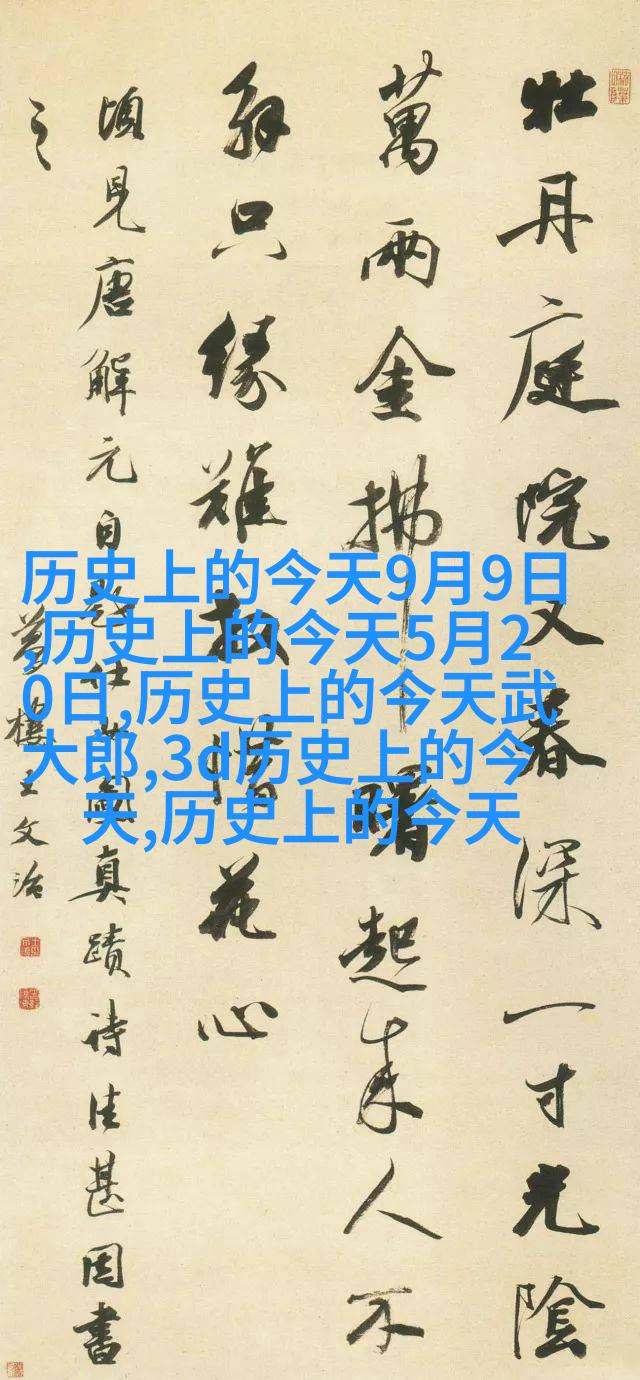 牡丹庭院又春深一寸光陰
萬兩金拂曙起來人不
解只緣難放惜花心
頃見唐解元自題仕女圖真蹟詩佳甚因書
之
夢樓王文治
历史上的今天9月9日
,历史上的今天5月2
0日,历史上的今天武
大郎,3d历史上的今
天,历史上的今天